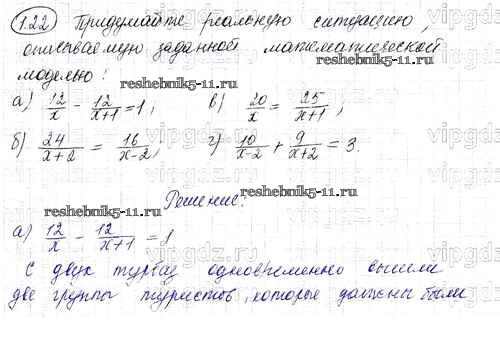 1.22 Придумайте реальную ситуацию,
описываемую заданной математической
моделью:
reshebnik5-11.ru
а) 12/x - 12/(x+1) = 1; в) 20/x = 25/(x+1);
reshebnik5-11.ru
б) 24/(x+2) = 16/(x-2); г) 10/(x-2) + 9/(x+2) = 3.
Решение:
reshebnik5-11.ru
а) 12/x - 12/(x+1) = 1
С двух турбаз одновременно вышли
две группы туристов, которые должны были
vipgdz.ru